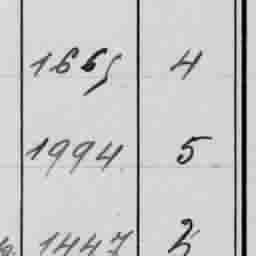 1665 4
1994 5
1447 2